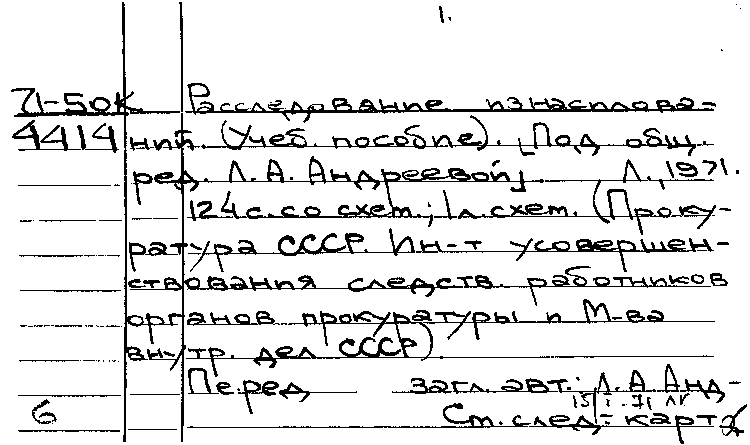 1.
71-50К Расследование изнасилова-
4414 ний. (Учеб. пособие). [Под общ.
ред. Л. А. Андреевой]. Л., 1971.
124 с. со схем.; 1 л. схем. (Проку-
ратура СССР. Ин-т усовершен-
ствования следств. работников
органов прокуратуры и М-ва
внутр. дел СССР).
Перед загл. авт.: Л. А. Анд-
6 См. след. карт